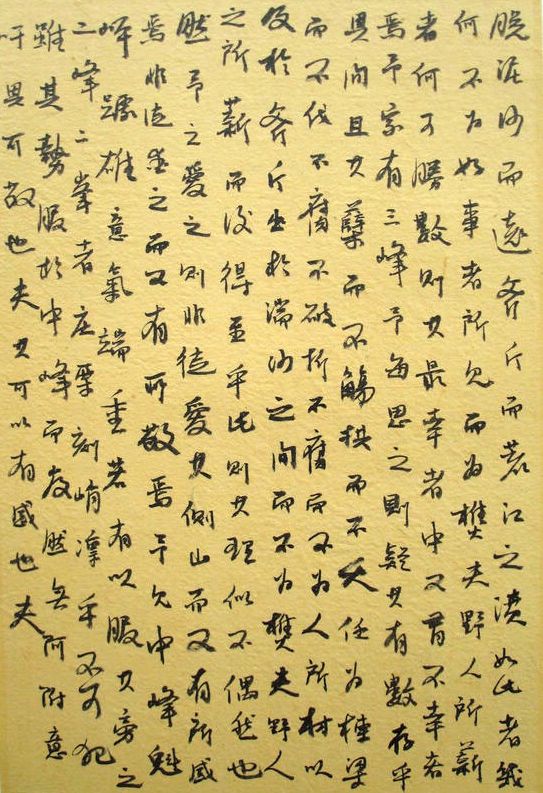 脱泥沙而遠斧斤而荒江之濆如此者幾
何不为好事者所見而为樵夫野人所薪
者何可勝數則其最幸者中又有不幸者
焉予家有三峰予每思之則疑其有數存乎
其间且其蘖而不觴拱而不夭任为棟梁
而不伐不腐不破折不腐而不为人所材以
及於斧斤出於湍沙之间而不为樊夫野人
之所薪而後得至乎此則其理似不偶然也
然予之愛之則非徒愛其似山而又有所感
焉非徒愛之而又有所敬焉予見中峰魁
岸踞雄意氣端重若有以服其旁之
二峰二峯者庄栗刻峭凜乎不可犯
雖其勢服於中峰而岌然無阿附意
吁其可敬也夫其可以有感也夫